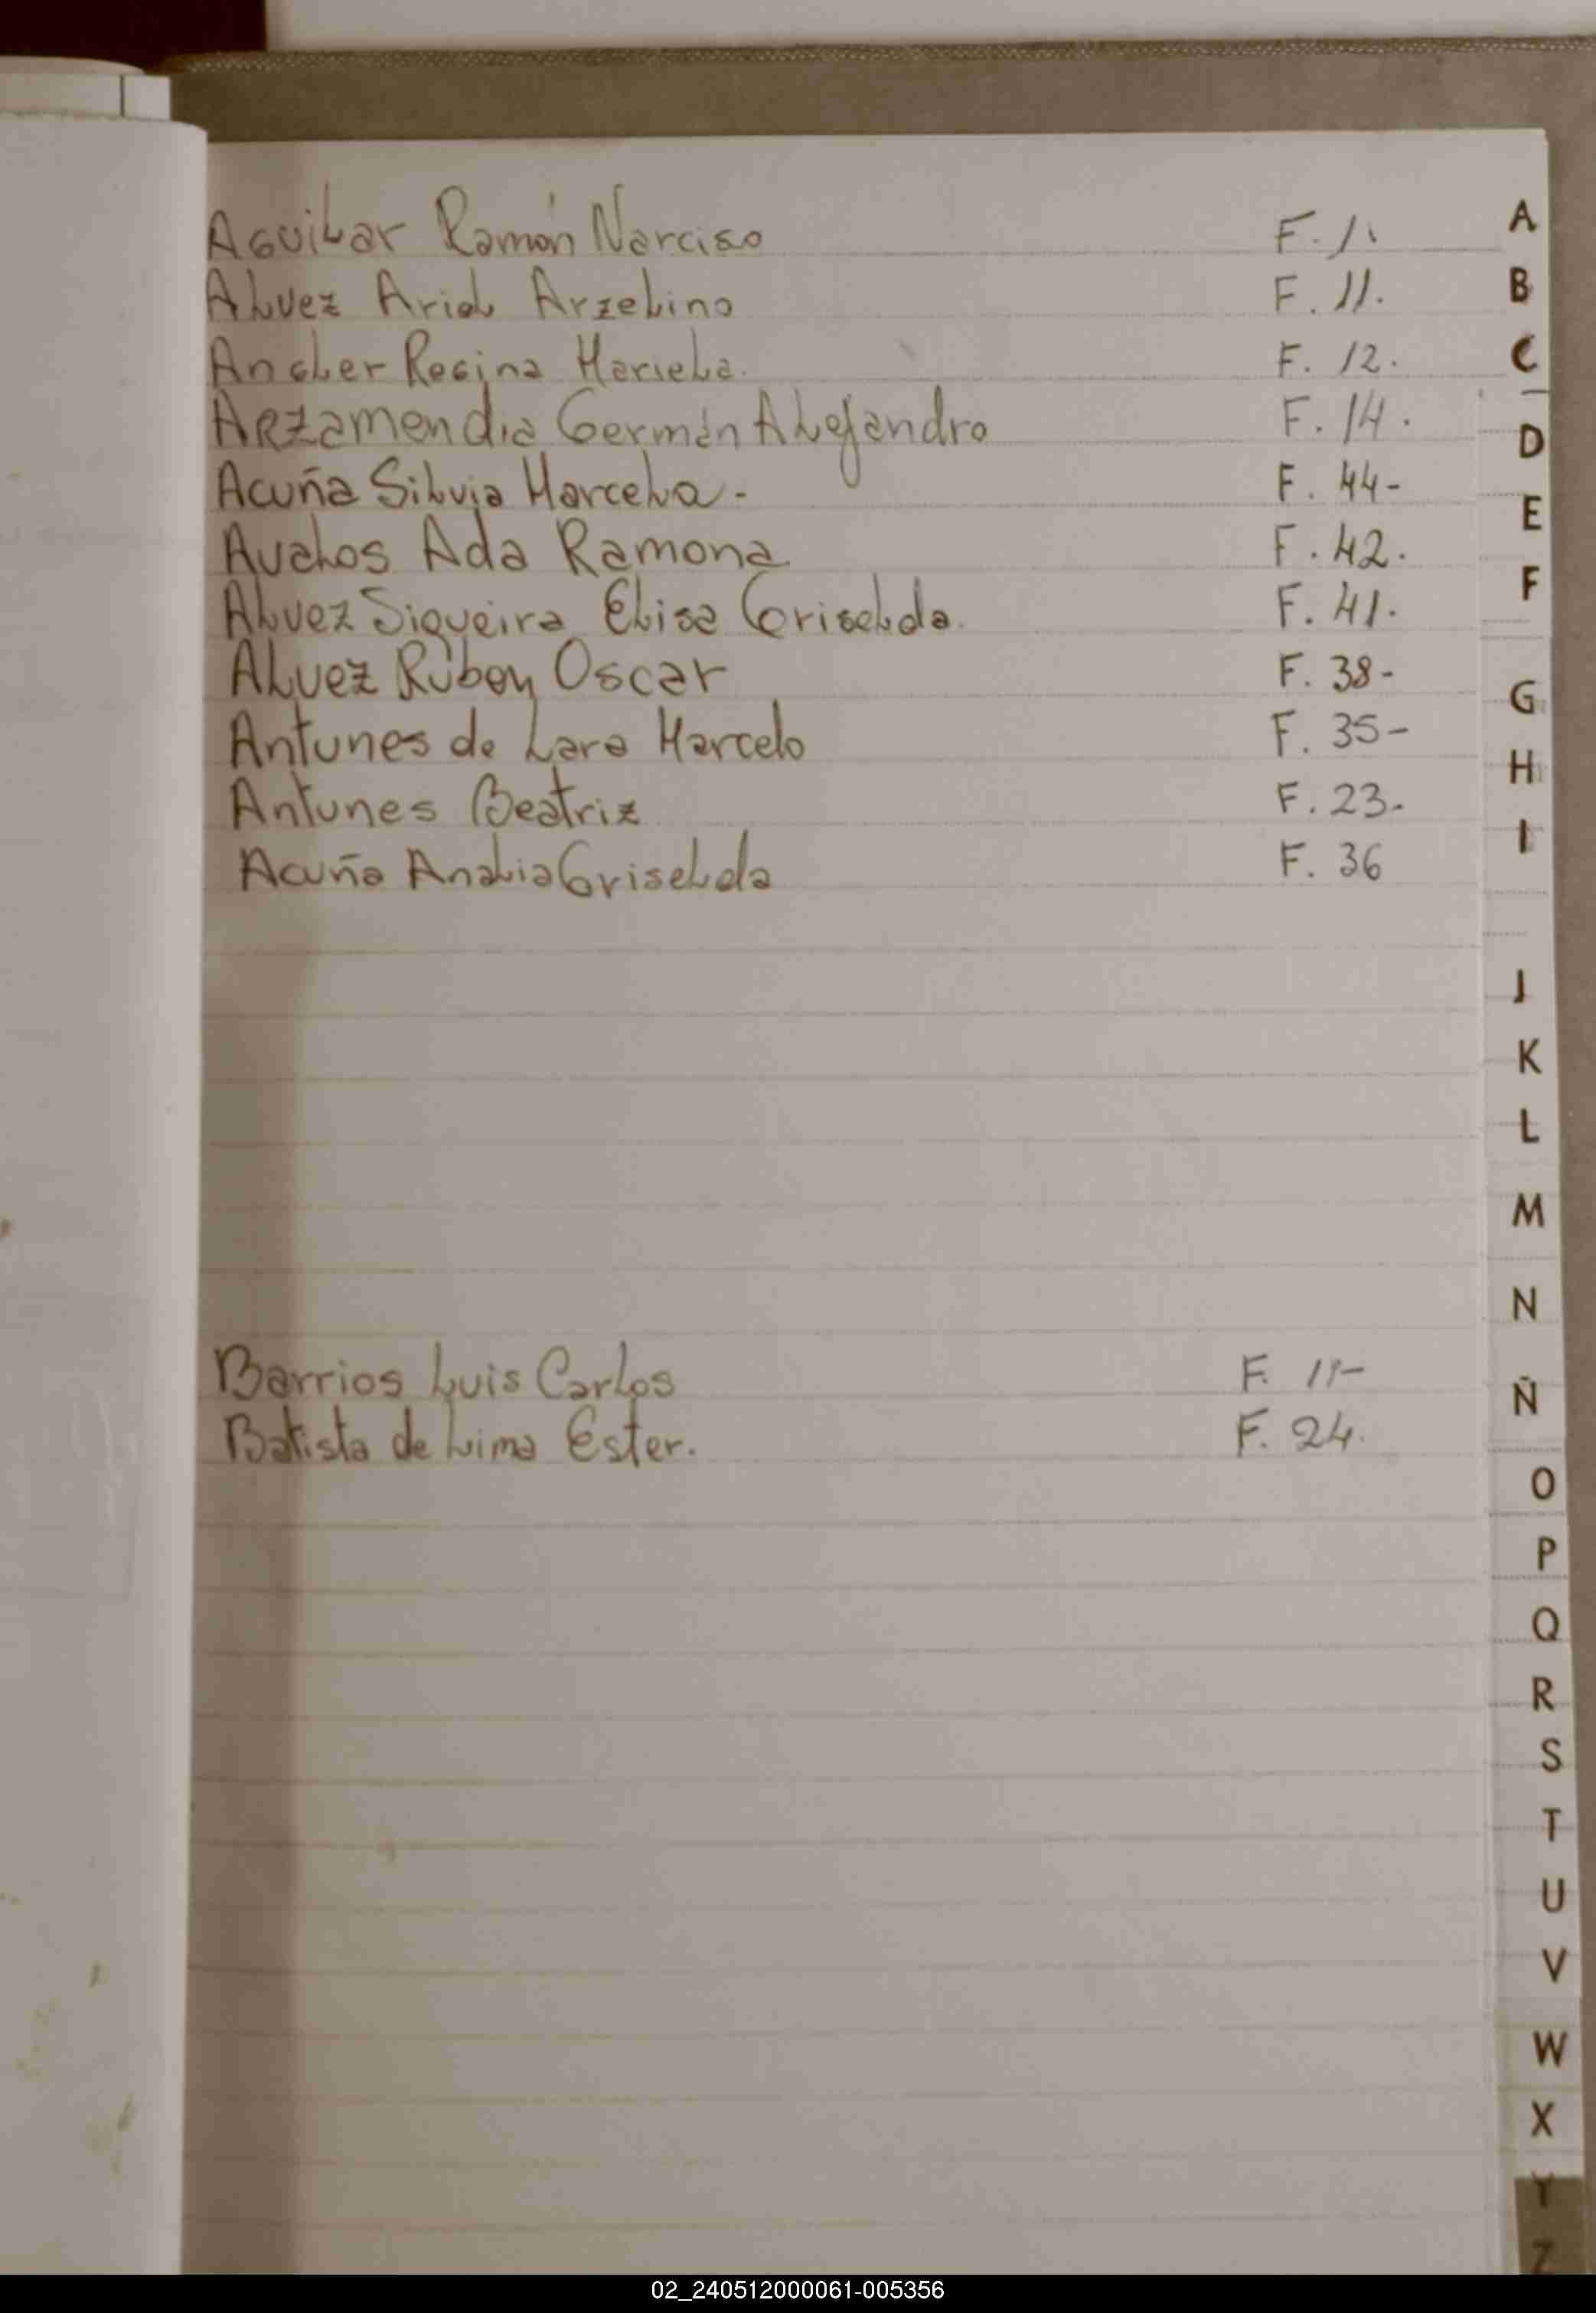 Aguilar Ramón Narciso F. 1.
Alvez Ariel Arzelino F. 11.
Angler Regina Mariela. F. 12.
Arzamendia Germán Alejandro F. 14.
Acuña Silvia Marcela - F. 44-
Avalos Ada Ramona F. 42.
Alvez Siqueira Elisa Griselda. F. 41.
Alvez Rúben Oscar F. 38-
Antunes de Lara Marcelo F. 35-
Antunes Beatriz F. 23-
Acuña Analia Griselda F. 36
Barrios Luis Carlos F. 11-
Batista de Lima Ester. F. 24.
A
B
C
D
E
F
G
H
I
J
K
L
M
N
Ñ
O
P
Q
R
S
T
U
V
W
X
Y
Z
02_240512000061-005356